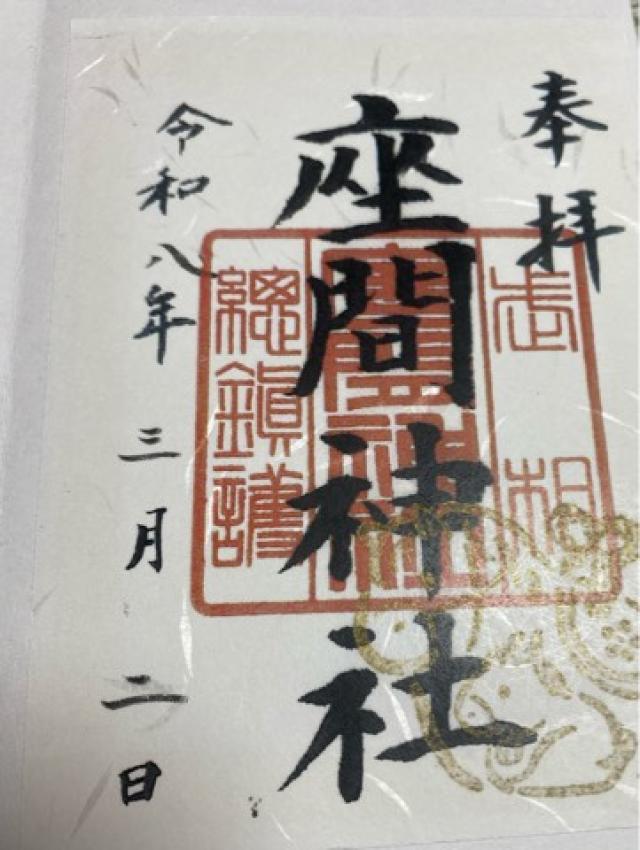 奉拝
座間神社
令和八年 三月 二日
相武
座間神社
總鎮護